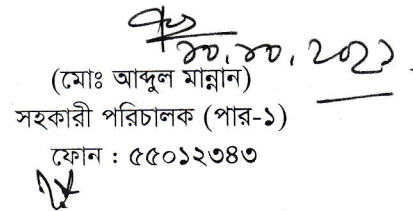 ১০.১০.২০২১
(মোঃ আব্দুল মান্নান)
সহকারী পরিচালক (পার-১)
ফোন : ৫৫০১২৩৪৩